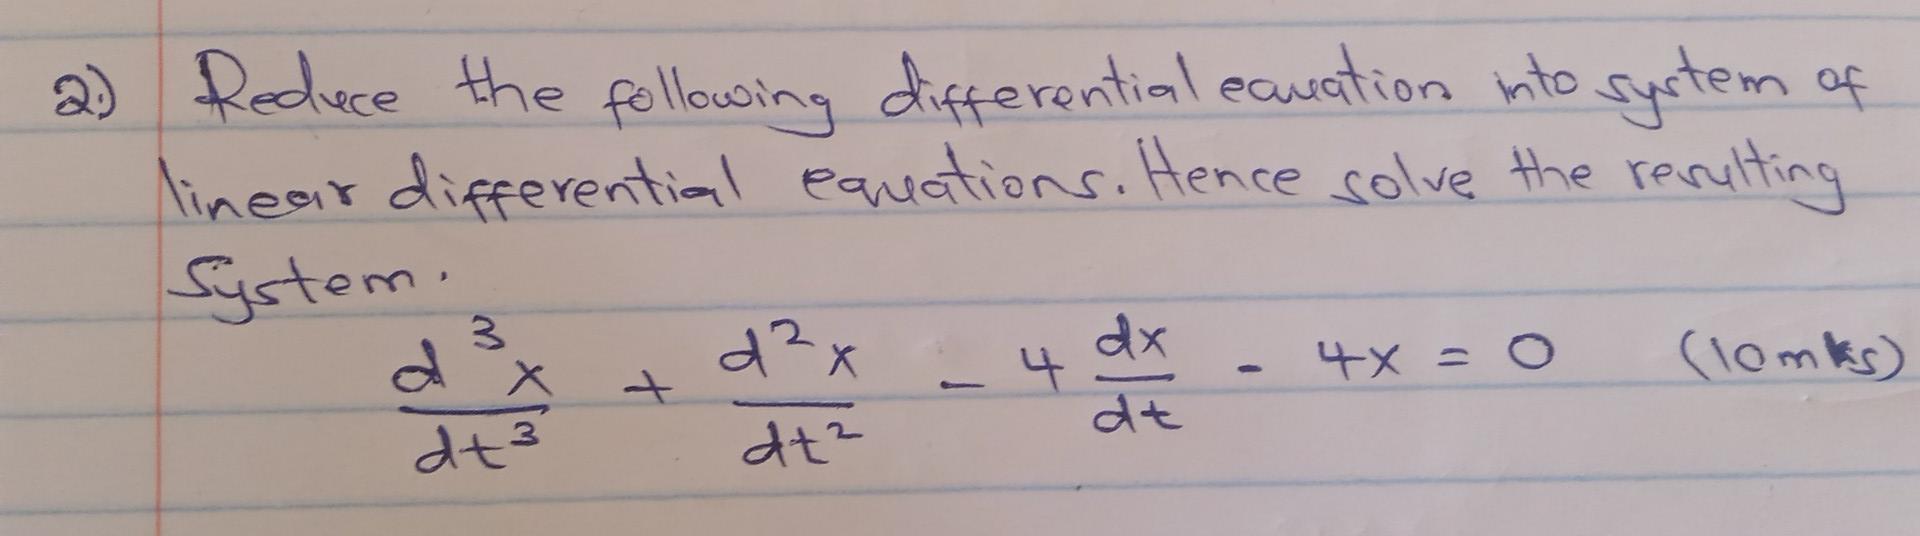 2.) Reduce the following differential equation into system of
linear differential equations. Hence solve the resulting
System.
d³x/dt³ + d²x/dt² - 4 dx/dt - 4x = 0 (10mks)